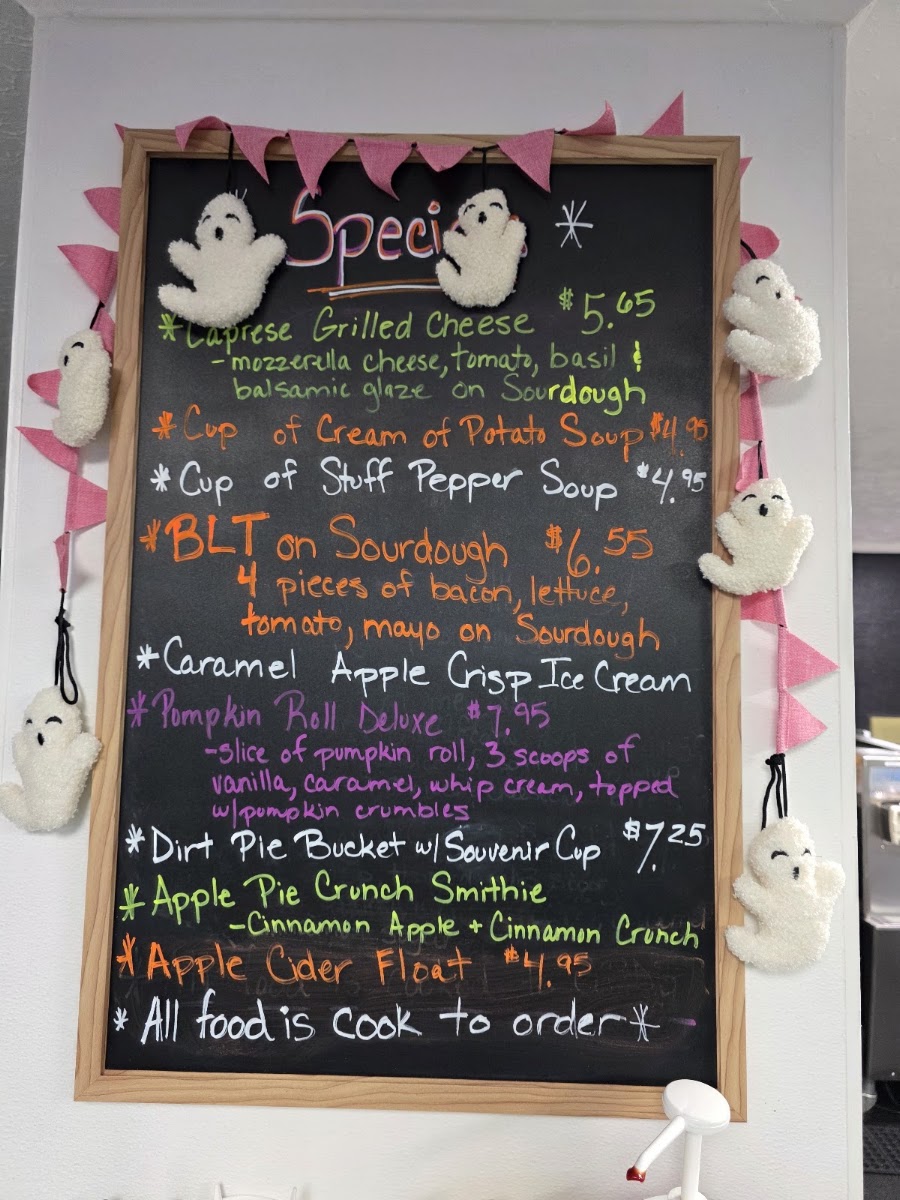 Speci *
* Caprese Grilled Cheese $5.65
- mozzerella cheese, tomato, basil &
balsamic glaze on Sourdough
* Cup of Cream of Potato Soup $4.95
* Cup of Stuff Pepper Soup $4.95
* BLT on Sourdough $6.55
4 pieces of bacon, lettuce,
tomato, mayo on Sourdough
* Caramel Apple Crisp Ice Cream
* Pumpkin Roll Deluxe $7.95
- slice of pumpkin roll, 3 scoops of
vanilla, caramel, whip cream, topped
w/pumpkin crumbles
* Dirt Pie Bucket w/ Souvenir Cup $7.25
* Apple Pie Crunch Smithie
- Cinnamon Apple + Cinnamon Crunch
* Apple Cider Float $4.95
* All food is cook to order *